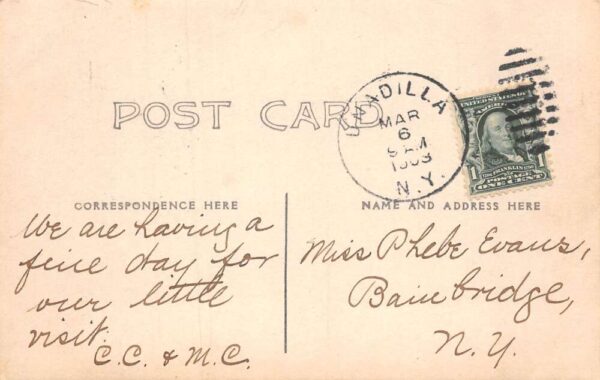 POST CARD
UNADILLA
MAR
6
9 AM
N.Y.
UNITED STATES OF
1 1
FRANKLIN
POSTAGE
ONE CENT
CORRESPONDENCE HERE
NAME AND ADDRESS HERE
We are having a
fine day for
our little
visit.
C.C. & M.C.
Miss Phebe Evans,
Bainbridge,
N.Y.